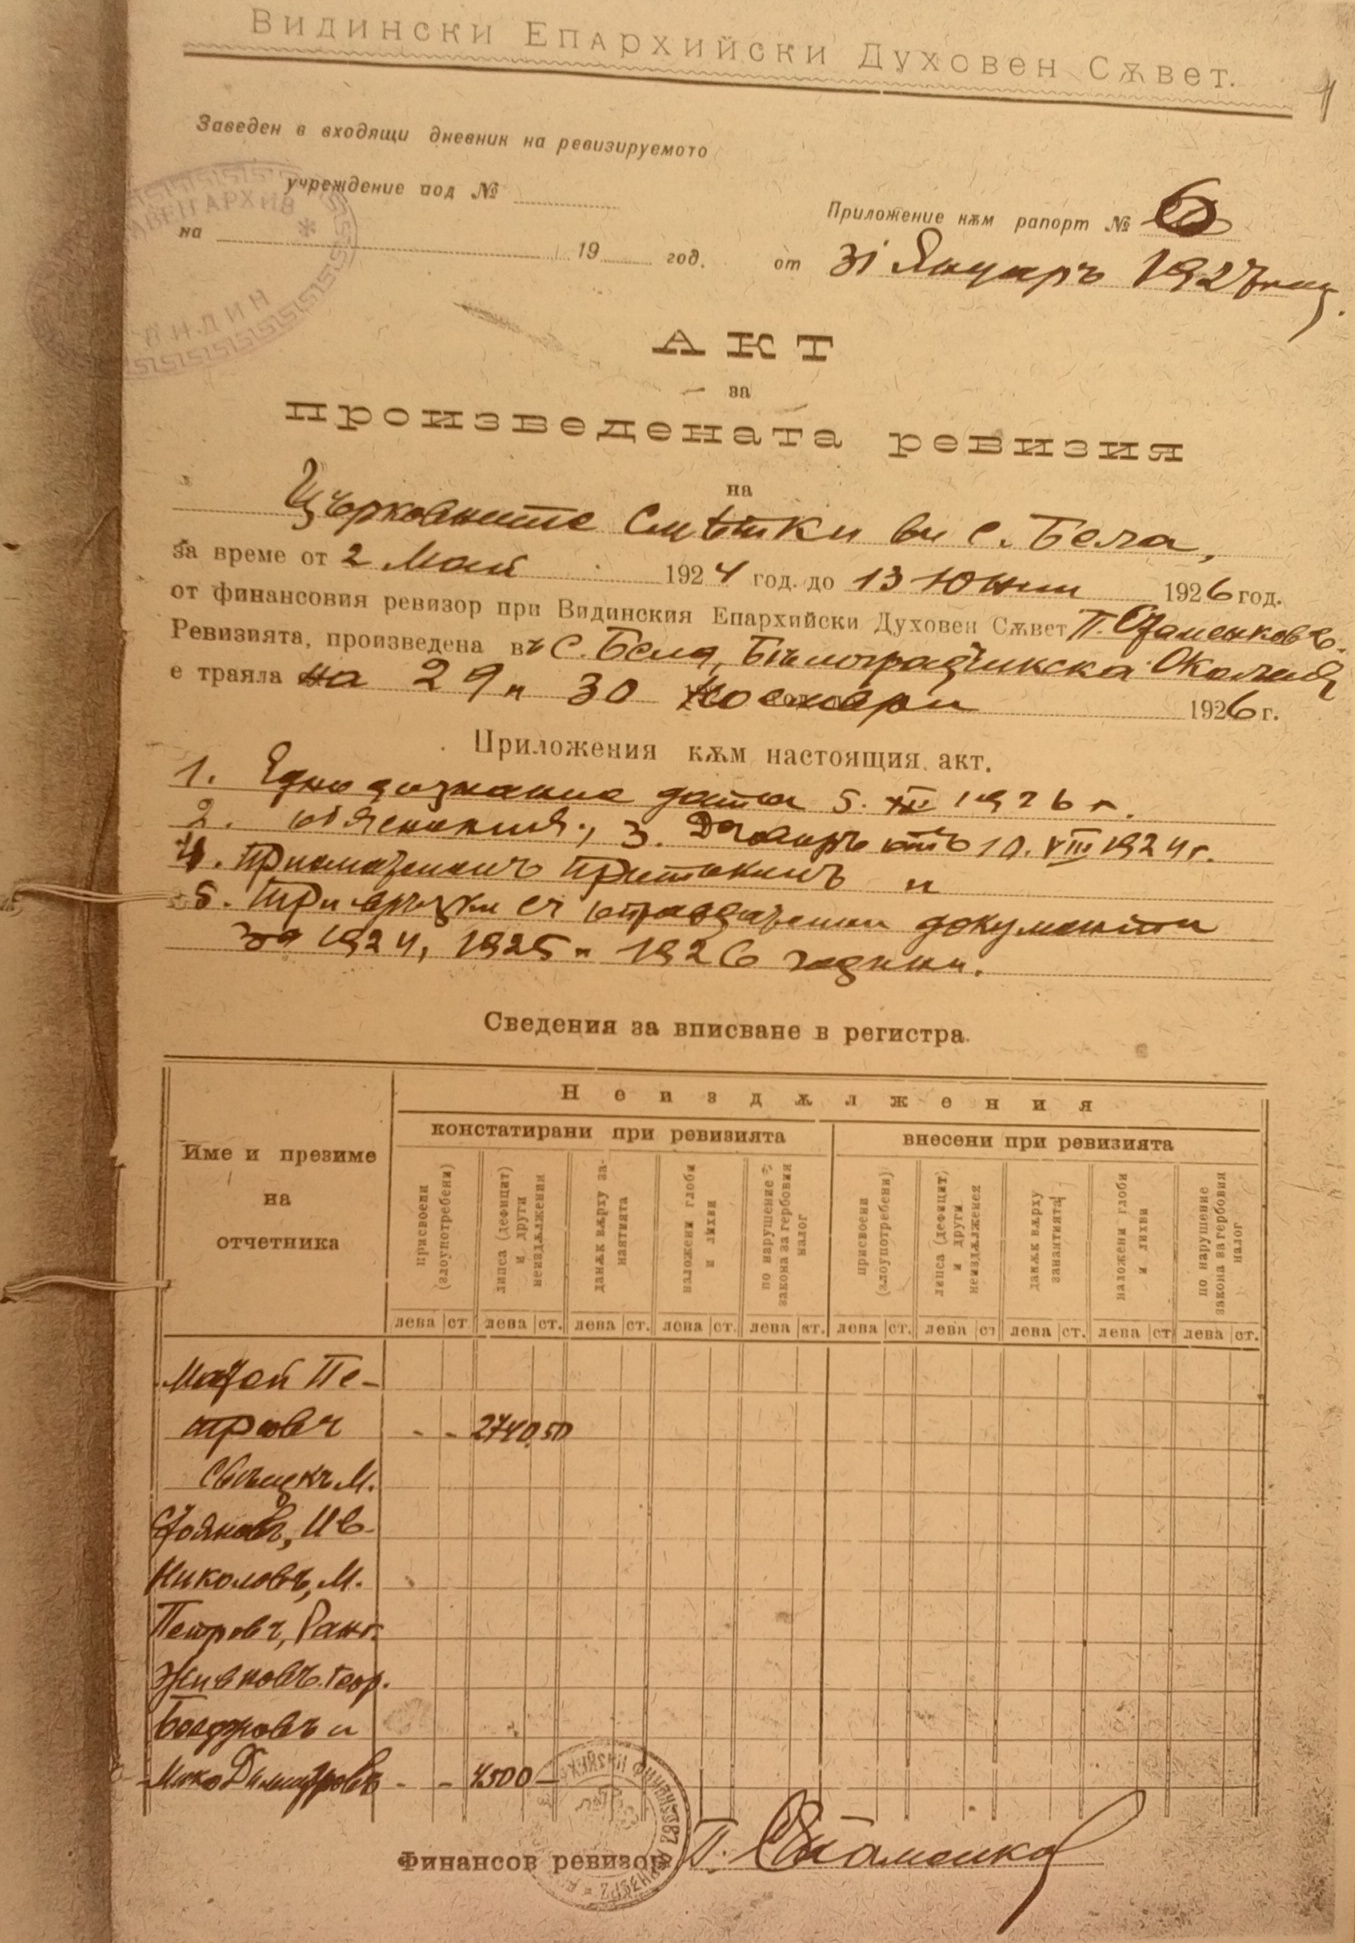 Видински Епархийски Духовен Сѫвет.
Заведен в входящи дневник на ревизируемото
учреждение под №
на 19 год.
Приложение кѫм рапорт № 6
от 31 Януаръ 1927 год.
АКТ
за
произведената ревизия
на
Църковните сметки въ с. Бела,
за време от 2 Май 1924 год. до 13 Юнии 1926 год.
от финансовия ревизор при Видинския Епархийски Духовен Сѫвет П. Стаменковъ.
Ревизията, произведена въ с. Бела, Бѣлоградчикска Околия
е траяла на 29 и 30 Ноемврии 1926 г.
Приложения кѫм настоящия акт.
1. Едно дознание дата 5. XII 1926 г.
2. обяснения., 3. Договоръ отъ 10. VIII 1924 г.
4. Приемателенъ Притокилъ и
5. Три връзки съ оправдателни документи
за 1924, 1925 и 1926 години.
Сведения за вписване в регистра.
Име и презиме на отчетника
Неиздѫлжения
констатирани при ревизията
внесени при ревизията
присвоени (злоупотребени)
липса (дефицит) и други неиздѫлжения
данѫк вѫрху занантията
наложени глоби и лихви
по нарушение закона за гербовия налог
присвоени (злоупотребени)
липса (дефицит) и други неиздѫлжения
данѫк вѫрху занантията
наложени глоби и лихви
по нарушение закона за гербовия налог
лева ст. лева ст. лева ст. лева ст. лева ст. лева ст. лева ст. лева ст. лева ст. лева ст.
Матей Пе-
тровъ - - 2740,50
Свещкъ М.
Стояновъ, Ив.
Николовъ, М.
Петровъ, Ранг.
Живковъ Геор.
и
Мико Димитровъ - - 4500 -
Финансов ревизор П. Стаменков